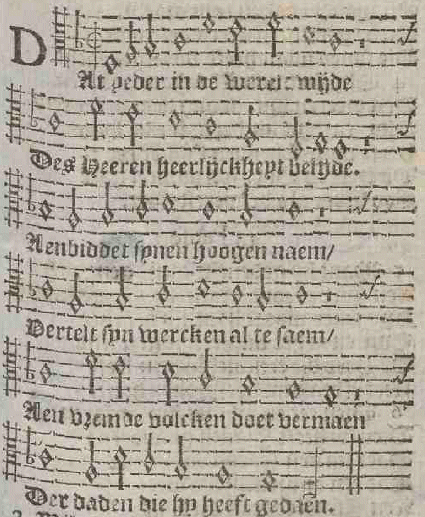 DAt yeder in de werelt wijde
Des Heeren heerlijckheyt belijde.
Aenbiddet synen hoogen naem/
Vertelt syn wercken al te saem/
Aen vremde volcken doet vermaen
Der daden die hy heeft gedaen.